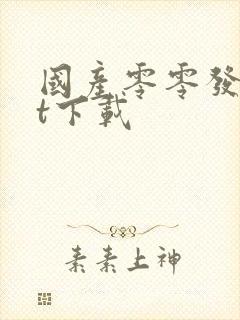 國產零零發
t下載
素素上神